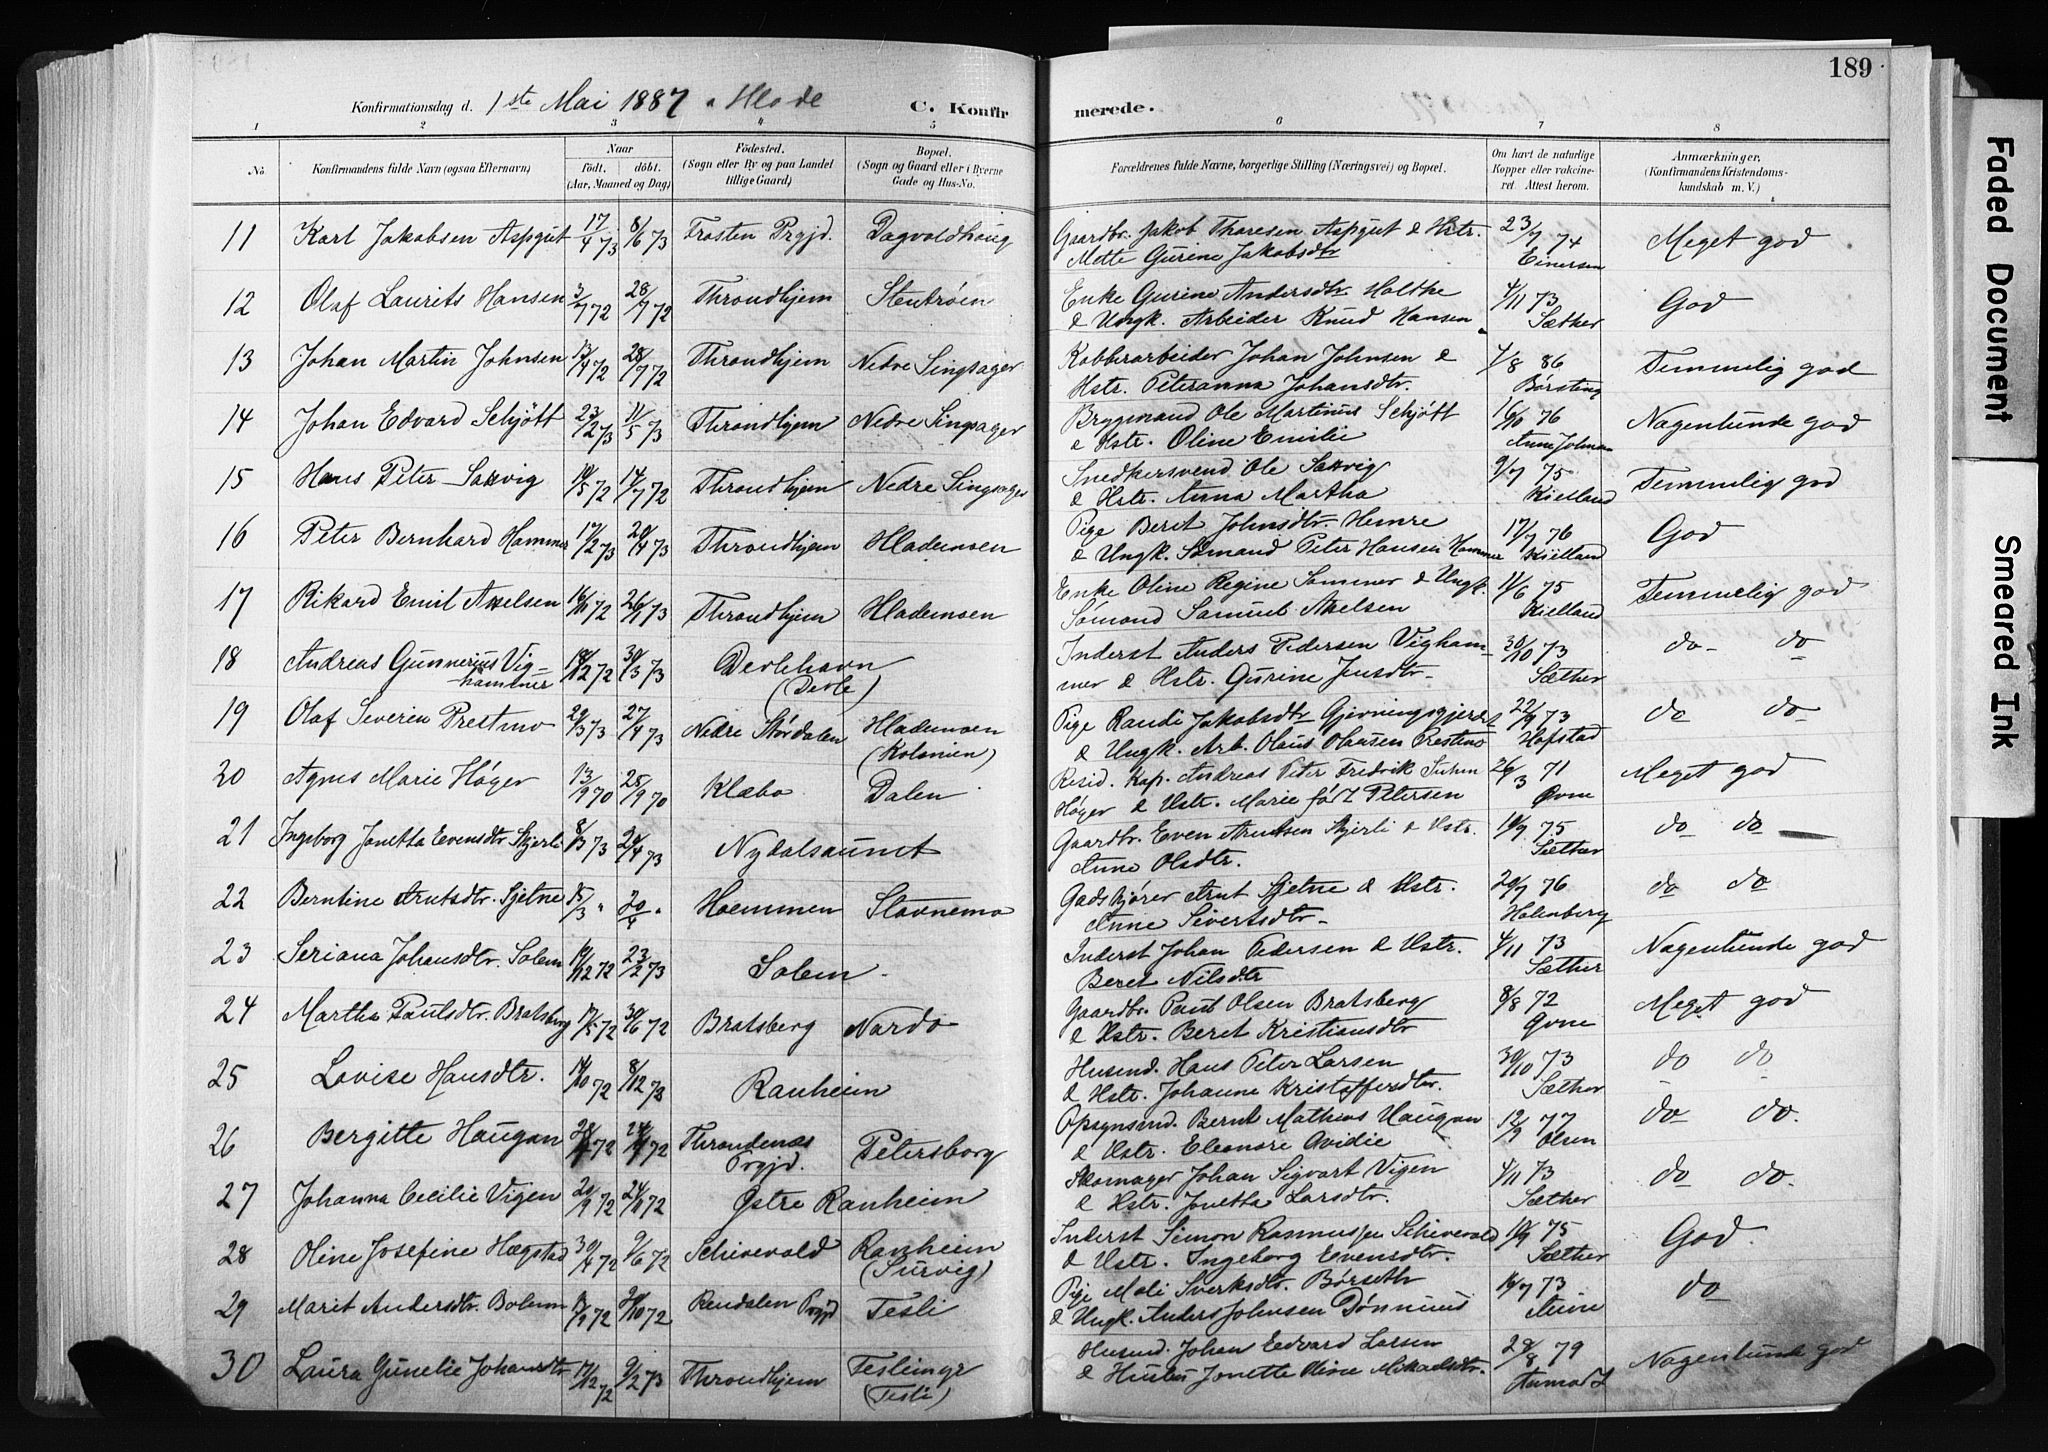 189
Konfirmationsdag d. 1ste Mai 1887 i Hlade C. Konfirmerede.
1 2 3 4 5 6 7 8
No. Konfirmandens fulde Navn (ogsaa Efternavn) Naar født. døbt. (Aar, Maaned og Dag) Födested. (Sogn eller By og paa Landet tillige Gaard) Bopæl. (Sogn og Gaard eller i Byerne Gade og Hus-No. Forældrenes fulde Navne, borgerlige Stilling (Næringsvei) og Bopæl. Om havt de naturlige Kopper eller vakcineret. Attest herom. Anmærkninger, (Konfirmandens Kristendomskundskab m. V.)
11 Karl Jakobsen Aspgut 17/4 73 8/6 73 Frosten Prgjd. Dagvoldhaug Gaardbr. Jakob Thoresen Aspgut & Hstr. Mette Gurine Jakobsdtr 23/7 74 Einersen Meget god
12 Olaf Laurits Hansen 3/7 72 28/7 72 Throndhjem Stentrøen Enke Gurine Andersdtr Holthe & Ungk. Arbeider Knud Hansen 4/11 73 Sæther God
13 Johan Martin Johnsen 28/7 72 Throndhjem Nedre Singsager Kobberarbeider Johan Johnsen & Hstr. Peteranna Johansdtr. 4/8 86 Børsting Temmelig god
14 Johan Edvard Schjött 23/2 73 11/5 73 Throndhjem Nedre Singsager Bryggmand Ole Martinus Schjött & Hstr. Oline Emilie 16/10 76 Nagenlunde god
15 Hans Peter Saxvig 10/5 72 14/7 72 Throndhjem Nedre Singsager Snedkersvend Ole Saxvig & Hstr. Anna Martha 9/7 75 Kielland Temmelig god
16 Peter Bernhard Hammer 17/2 73 20/4 73 Throndhjem Hlademoen Pige Beret Johnsdtr Hemre & Ungk. Sömand Peter Hansen Hammer 17/7 76 Kielland God
17 Rikard Emil Axelsen 16/11 72 26/1 73 Throndhjem Hlademoen Enke Oline Regine Sommer & Ungk. Sømand Samuel Axelsen 11/6 75 Kielland Temmelig god
18 Andreas Gunnerius Vighammer 18/12 72 30/3 73 Devlehavn (Devle) Inderst Anders Pedersen Vighammer & Hstr. Gurine Jensdtr 30/10 73 Sæther do do
19 Olaf Severin Prestmo 29/3 73 27/4 73 Nedre Størdalen Hlademoen (Kolonien) Pige Randi Jakobsdtr & Ungk. Arb. Olaus Olausen Prestmo 22/9 73 Hofstad do do
20 Agnes Marie Høyer 13/9 70 25/9 70 Klæbo Dalen Resid. Kap. Andreas Peter Fredrik Høyer & Hstr. Marie født Petersen 26/3 71 Øvne Meget god
21 Ingeborg Jonetta Evensdtr Stjerli 8/3 73 20/4 73 Nydalsaunet Gaardbr. Even Arntsen Stjerli & Hstr. Anne Olsdtr. 19/9 75 Sæther do do
22 Berntine Arntsdtr. Sjetne 15/3 " 20/4 " Hoemmen Stavnemo Arnt Sjetne & Hstr. Anne Sivertsdtr 20/7 76 Holenberg do do
23 Seriana Johansdtr. Solem 19/12 72 23/2 73 Solem Inderst Johan Pedersen & Hstr. Beret Nilsdtr 4/11 73 Sæther Nagenlunde god
24 Martha Paulsdtr. Bratsberg 17/5 72 30/6 72 Bratsberg Nardo Gaardbr. Paul Olsen Bratsberg & Hstr. Beret Kristiansdtr 8/8 72 Øvne Meget god
25 Lovise Hansdtr. 14/10 72 8/12 72 Ranheim Husmd. Hans Peter Larsen & Hstr. Johanne Kristoffersdtr. 30/10 73 Sæther do do
26 Bergitte Haugan 72 72 Throndenæs Prgjd. Petersborg Opsynsmd. Bernt Mathias Haugan & Hstr. Eleonore Ovidie 12/9 77 Olsen do do.
27 Johanna Cecilie Vigen 20/9 72 24/11 72 Østre Ranheim Skomager Johan Sigvart Vigen & Hstr. Jonetta Larsdtr. 4/11 73 Sæther do do.
28 Oline Josefine Hægstad 30/4 72 9/6 72 Schievold Ranheim (Survig) Inderst Simon Rasmussen Schievold & Hstr. Ingeborg Evensdtr. 19/9 75 Sæther God.
29 Marit Andersdtr. 72 72 Rendalen Prgjd Tesli Pige Mali Sverksdtr. Børseth & Ungk. Anders Johnsen Dønnum 14/7 73 Aune do
30 Laura Gunelie Johansdtr 17/12 72 9/2 73 Throndhjem Teslinye (Tesli) Husmd. Johan Edvard Larsen & Hustru Jonette Oline Mikaelsdtr. 29/8 79 Nagenlunde god
Faded Document
Smeared Ink